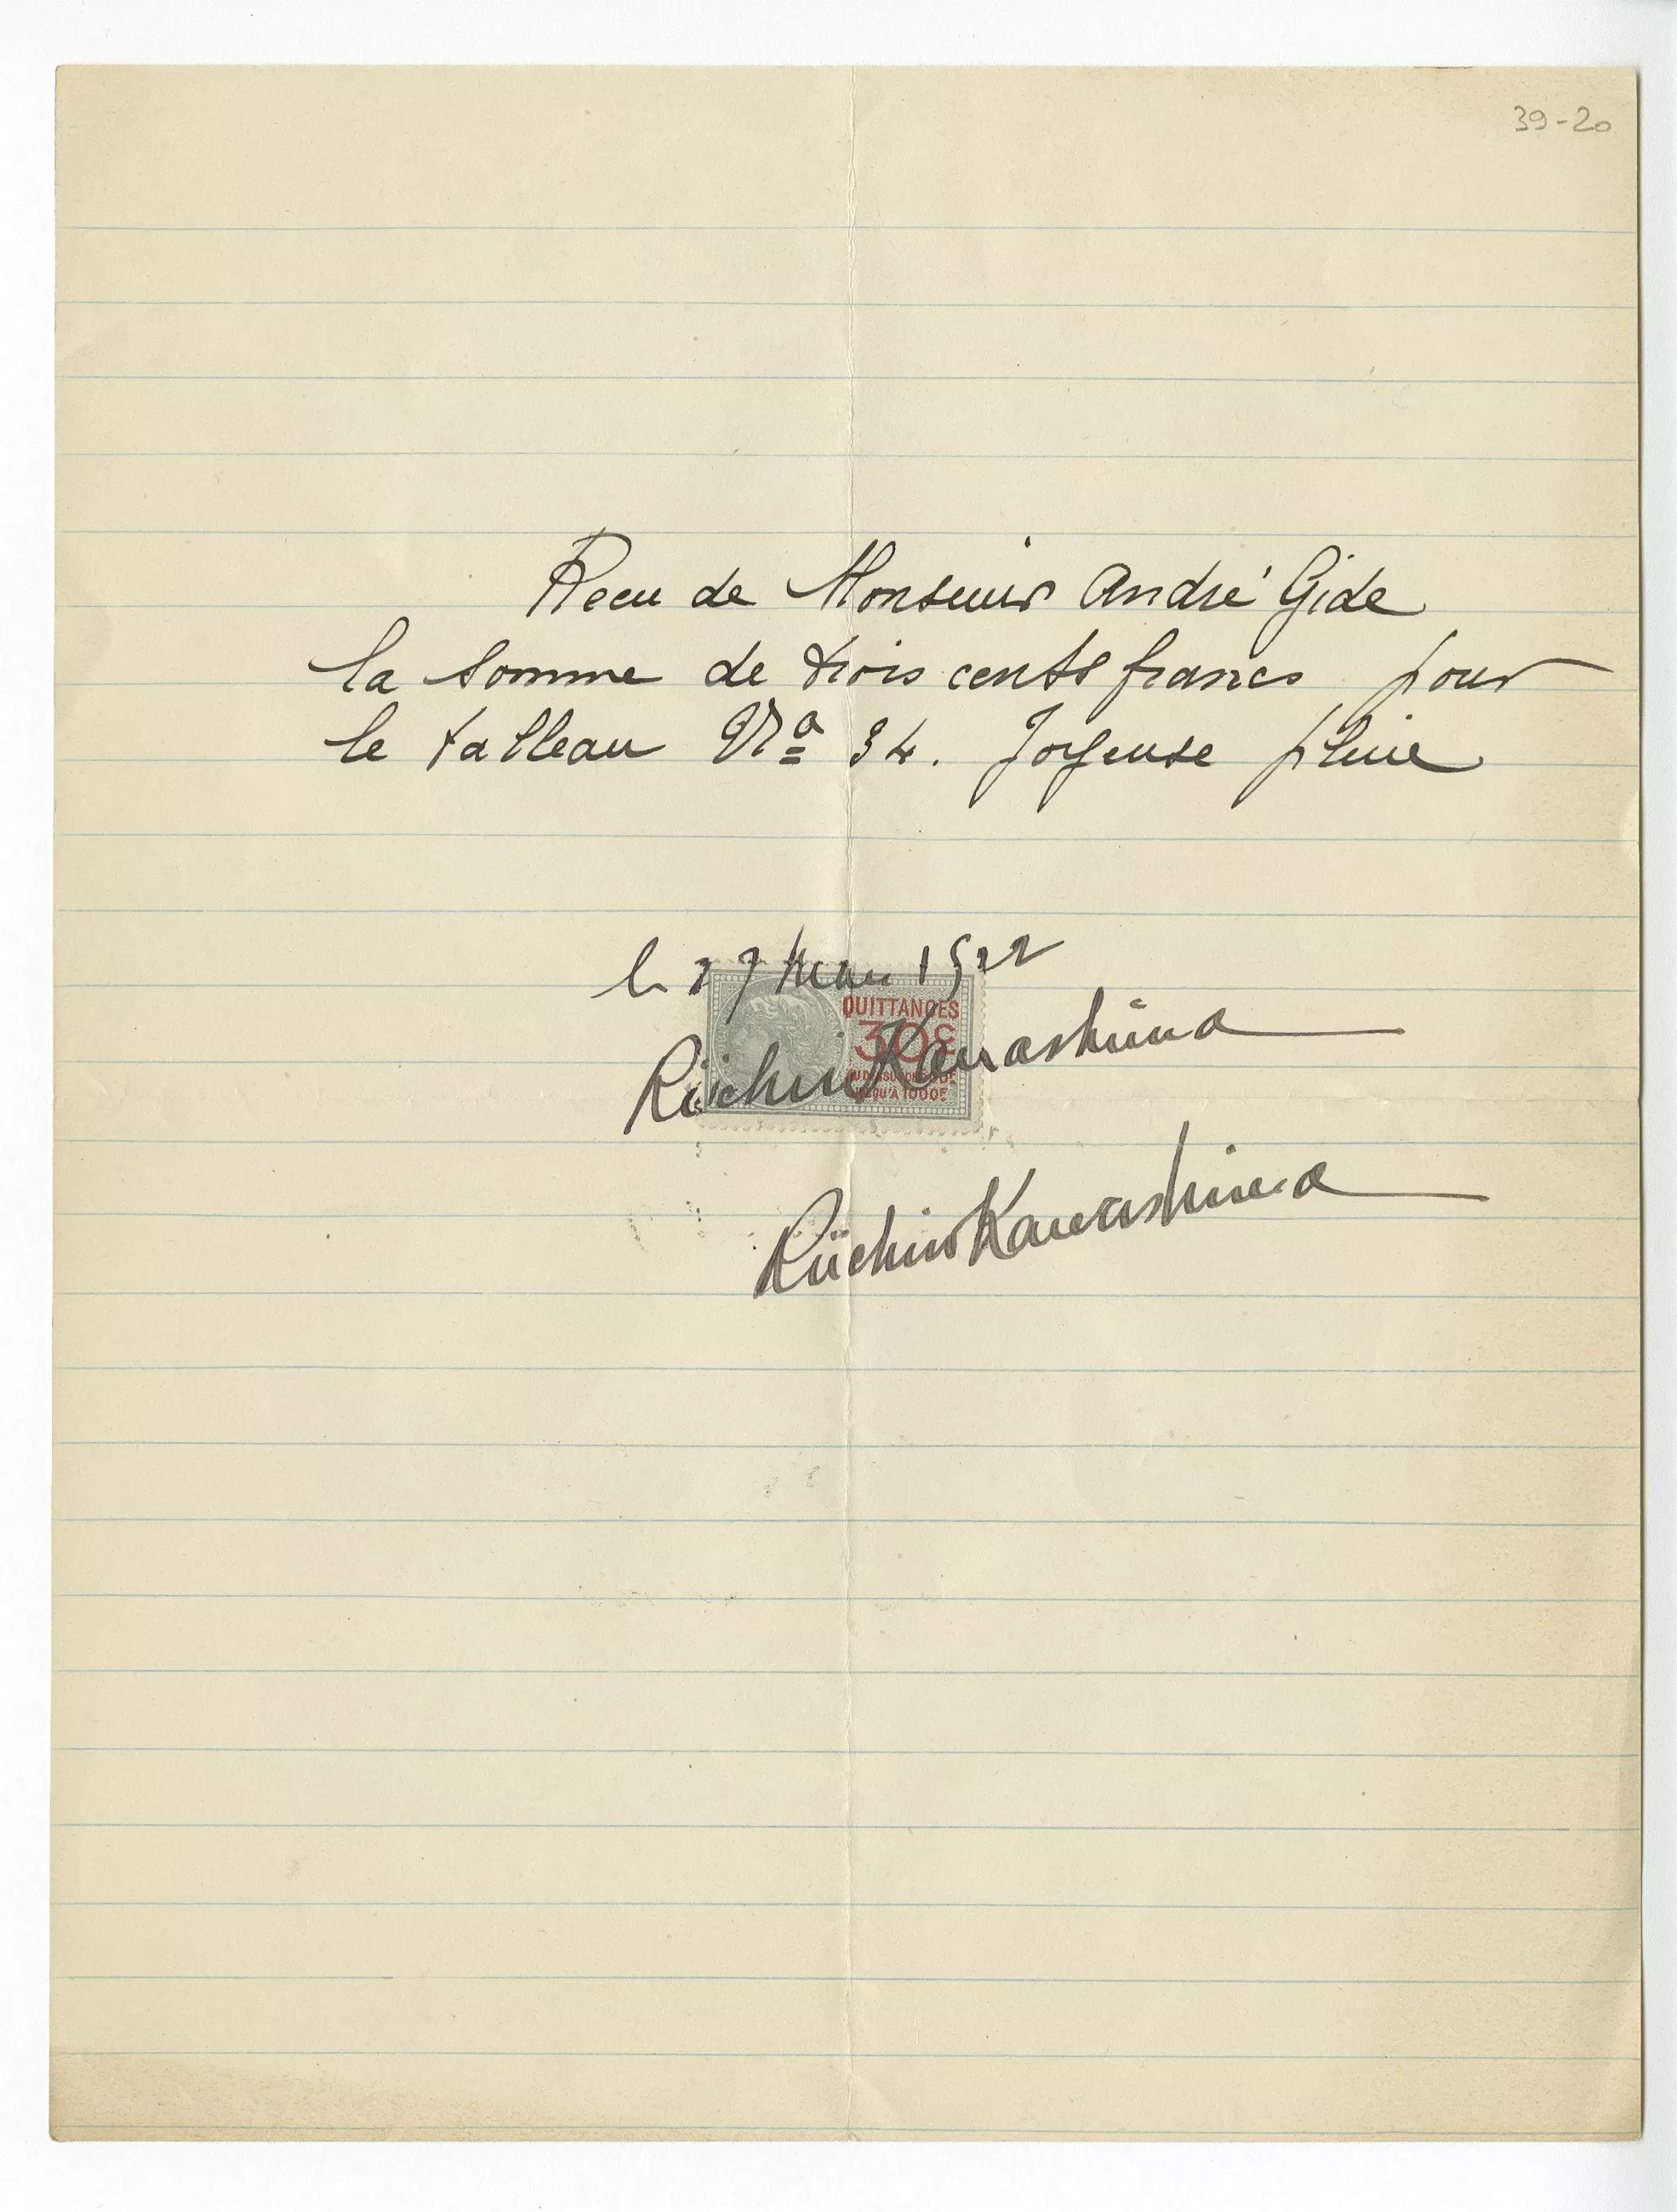 39-20
Recu de Monseuir André Gide
la somme de trois cents francs pour
le tableau No 34. Joyeuse pluie
le 27 Mars 1922
QUITTANCES
30c
JUSQU'A 1000F
Riichiro Kawashima
Riichiro Kawashima